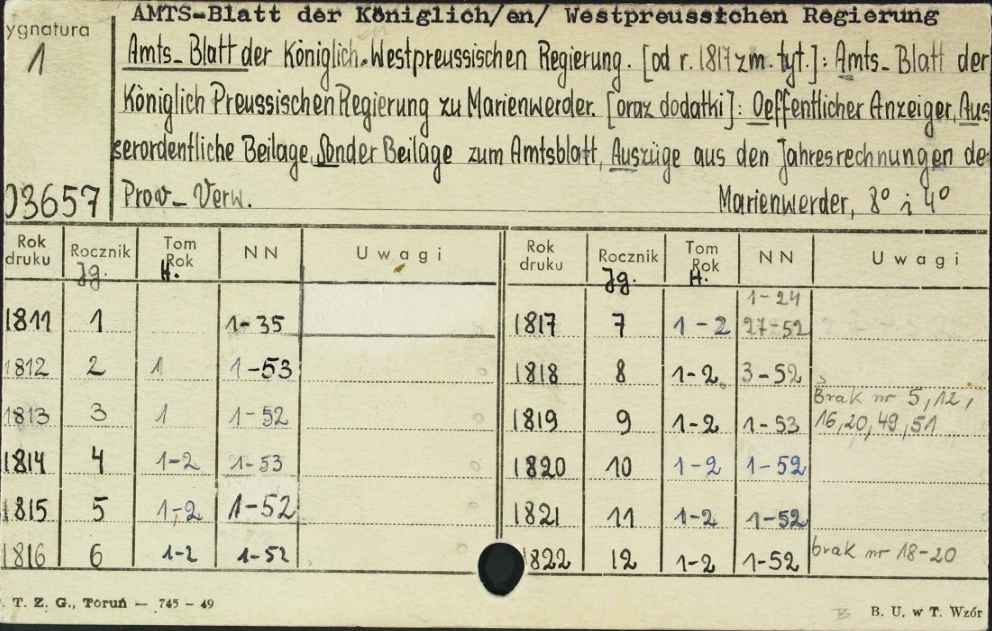 AMTS-Blatt der Königlich/en/ Westpreussischen Regierung
ygnatura
1
Amts-Blatt der Königlich-Westpreussischen Regierung. [od r. 1817 zm. tyt.]: Amts-Blatt der
Königlich Preussischen Regierung zu Marienwerder. [oraz dodatki]: Oeffentlicher Anzeiger, Aus
serordentliche Beilage, Sonder Beilage zum Amtsblatt, Auszüge aus den Jahresrechnungen de
03657 Prov-Verw. Marienwerder, 8° i 4°
Rok druku Rocznik Jg. Tom Rok H. NN Uwagi
1811 1 1-35
1812 2 1 1-53
1813 3 1 1-52
1814 4 1-2 1-53
1815 5 1-2 1-52
1816 6 1-2 1-52
Rok druku Rocznik Jg. Tom Rok H. NN Uwagi
1-24
1817 7 1-2 27-52
1818 8 1-2 3-52
Brak nr 5, 12,
1819 9 1-2 1-53 16, 20, 49, 51
1820 10 1-2 1-52
1821 11 1-2 1-52
1822 12 1-2 1-52 brak nr 18-20
. T. Z. G., Toruń — 745 — 49
B. U. w T. Wzór